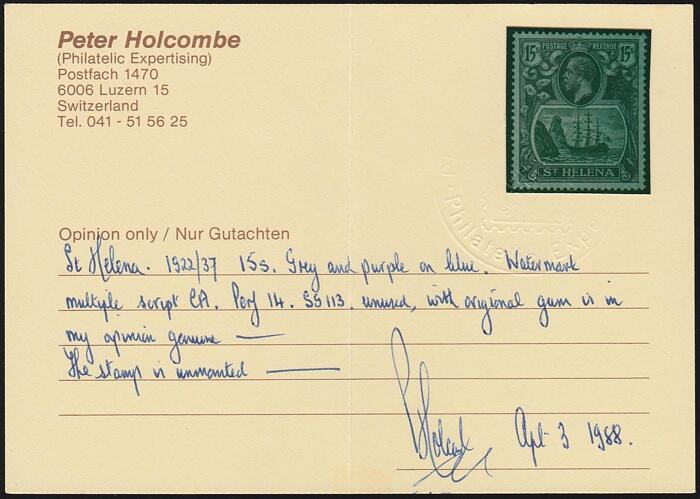 Peter Holcombe
(Philatelic Expertising)
Postfach 1470
6006 Luzern 15
Switzerland
Tel. 041 - 51 56 25
15s POSTAGE & REVENUE 15s
ST HELENA
Opinion only / Nur Gutachten
St Helena. 1922/37 15s. Grey and purple on blue. Watermark
multiple script CA. Perf 14. SG 113. unused, with original gum is in
my opinion genuine —
The stamp is unmounted —
P Holcombe April 3 1988.
Philatelic Expert